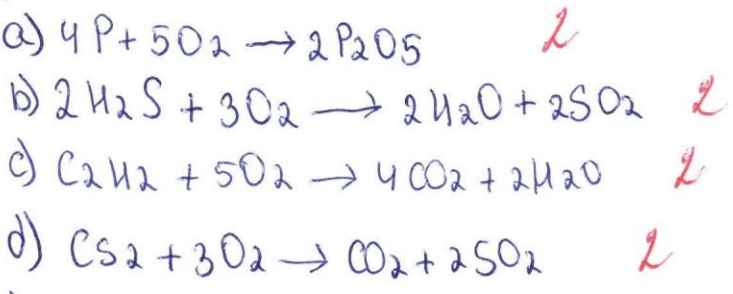 a) 4P + 5O2 → 2P2O5 2
b) 2H2S + 3O2 → 2H2O + 2SO2 2
c) C2H2 + 5O2 → 4CO2 + 2H2O 2
d) CS2 + 3O2 → CO2 + 2SO2 2